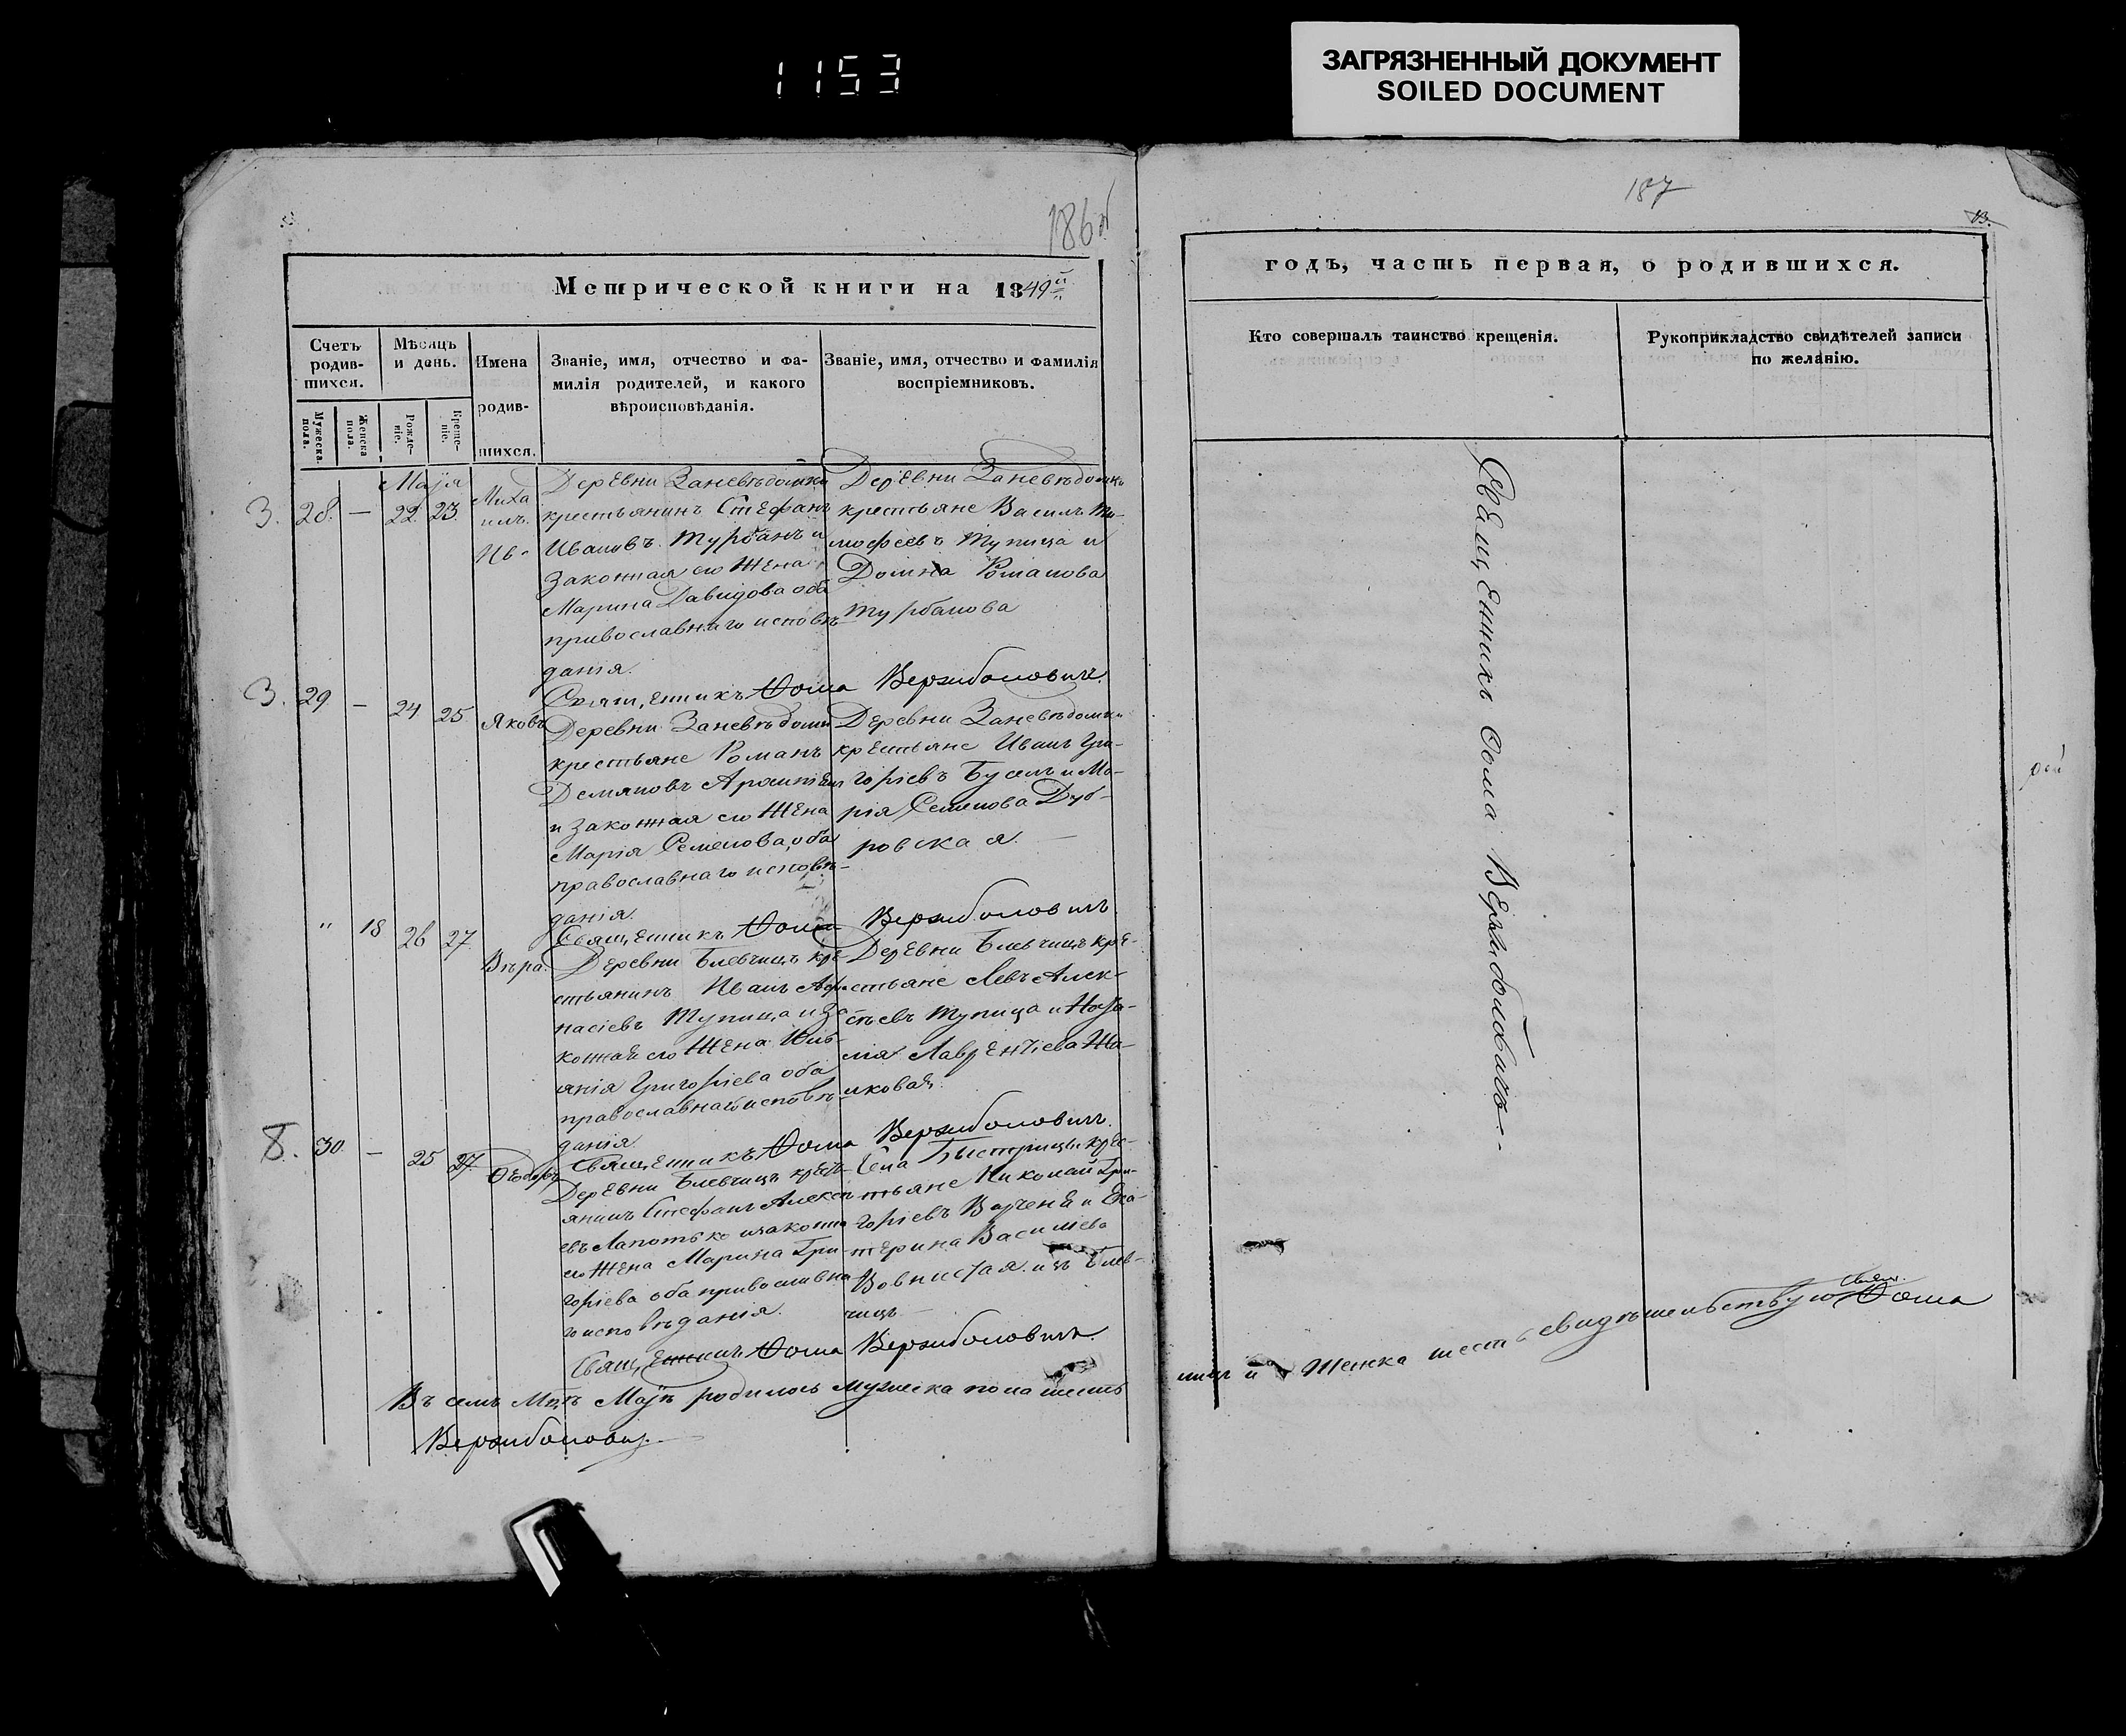 1153
ЗАГРЯЗНЕННЫЙ ДОКУМЕНТ
SOILED DOCUMENT
186
187
13.
Метрической книги на 1849й
годъ, часть первая, о родившихся.
Счетъ родив-шихся.
Мужеска пола.
Женска пола.
Мѣсяцъ и день.
Рожде-ніе.
Креще-ніе.
Имена родив-шихся.
Званіе, имя, отчество и фа-
милія родителей, и какого
вѣроисповѣданія.
Званіе, имя, отчество и фамилія
воспріемниковъ.
Кто совершалъ таинство крещенія.
Рукоприкладство свидѣтелей записи
по желанію.
Маія
3. 28. — 22. 23. Миха
илъ.
Деревни Заневѣдомки
крестьянинъ Стефанъ
Ивановъ Турбанъ и
законная его жена
Марина Давидова оба
православнаго исповѣ-
данія.
Деревни Заневѣдомки
крестьяне Василь Ти-
мофеевъ Тупица и
Домна Романова
Турбанова
Священникъ Ѳома Вержболовичъ.
3. 29 — 24 25. Яковъ
Деревни Заневѣдомки
крестьяне Романъ
Демяновъ
и законная его жена
Марія Семенова, оба
православнаго исповѣ-
данія.
Деревни Заневѣдомки
крестьяне Иванъ Гри-
горіевъ Бусель и Ма-
рія Семенова Дуб-
ровская. —
Священникъ Ѳома Вержболовичъ
" 18 26 27. Вѣра.
Деревни Блевчицъ кре-
стьянинъ Иванъ Афа-
насіевъ Тупица и за-
конная его жена
Григоріева оба
православнаго исповѣ-
данія
Деревни Блевчицъ кре-
стьяне Левъ Алек-
сѣевъ Тупица и Ната-
лія Лаврентіева Жи-
лковая.
Священникъ Ѳома Вержболовичъ.
8. 30. — 25 27. Ѳеодоръ
Деревни Блевчицъ крест-
янинъ Стефанъ Алексѣ-
евъ Лапотько и законна
его жена Марина Гри-
горіева оба православна
го исповѣданія.
Села Быстрицы крес-
тьяне Николай Гри-
горіевъ и Ека-
терина Василіева
изъ Блев-
чицъ —
Священникъ Ѳома Вержболовичъ.
Священникъ Ѳома Вержболовичъ.
Въ семъ Мцѣ Маіѣ родилось мужеска пола шесть
и Женска шесть свидѣтельствую Свящ. Ѳома
Вержболовичъ.